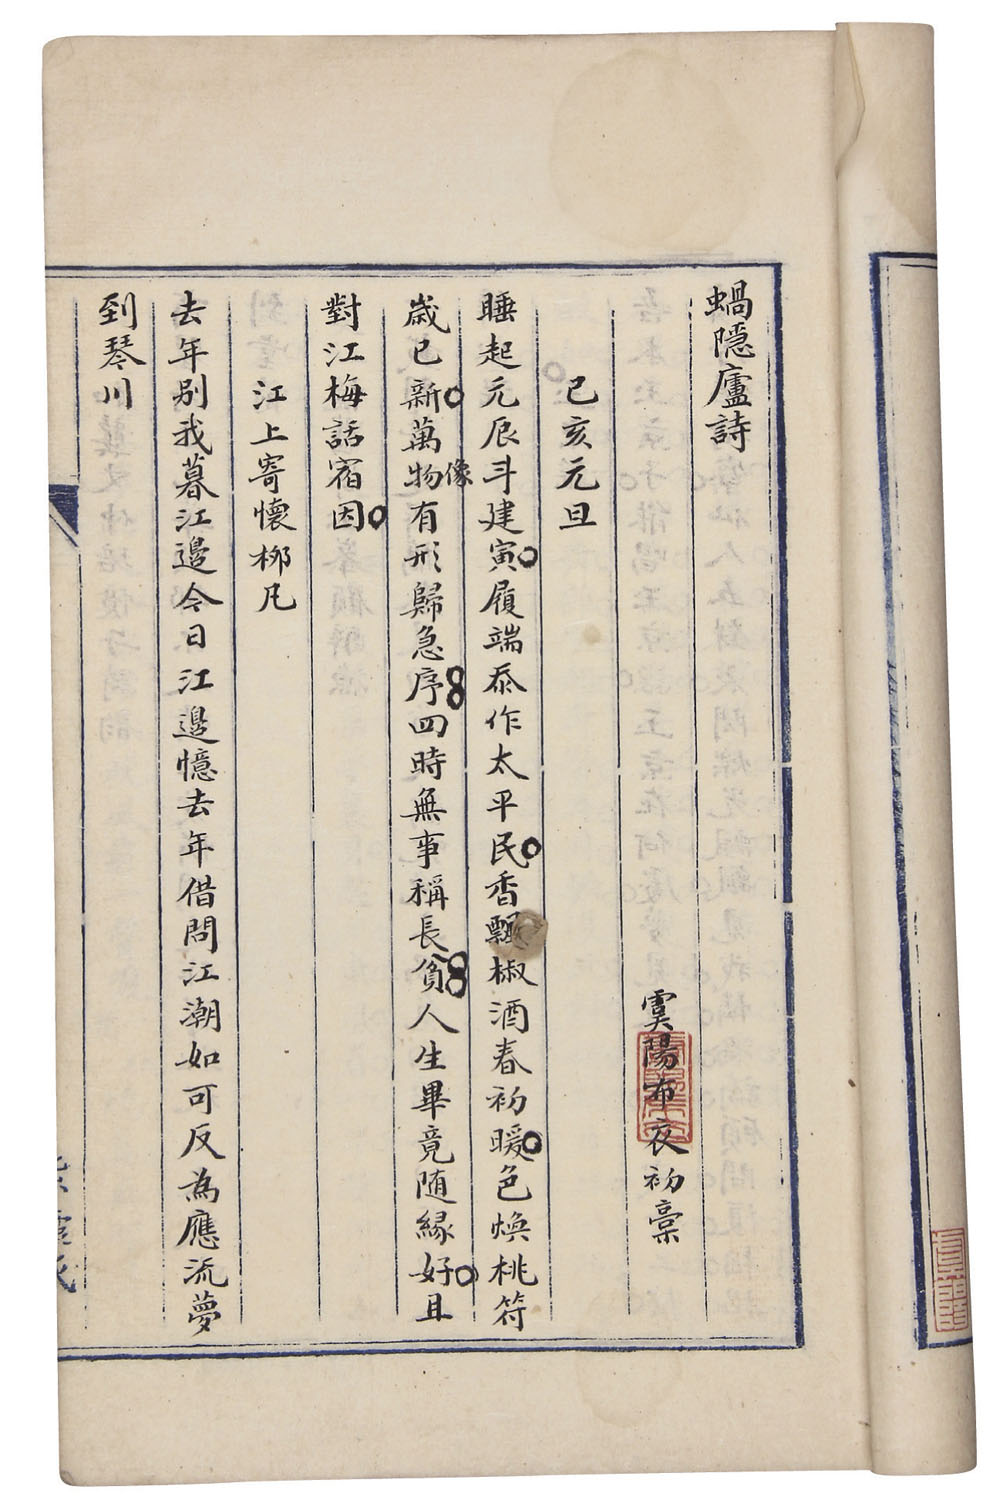 蝸隱廬詩
虞陽布衣初稾
己亥元旦
睡起元辰斗建寅履端忝作太平民香飄椒酒春初暖色煥桃符
歲已新萬物有形歸急序四時無事稱長貧人生畢竟随緣好且
像
對江梅話宿因
江上寄懷柳凡
去年别我暮江邊今日江邊憶去年借問江潮如可反為應流夢
到琴川